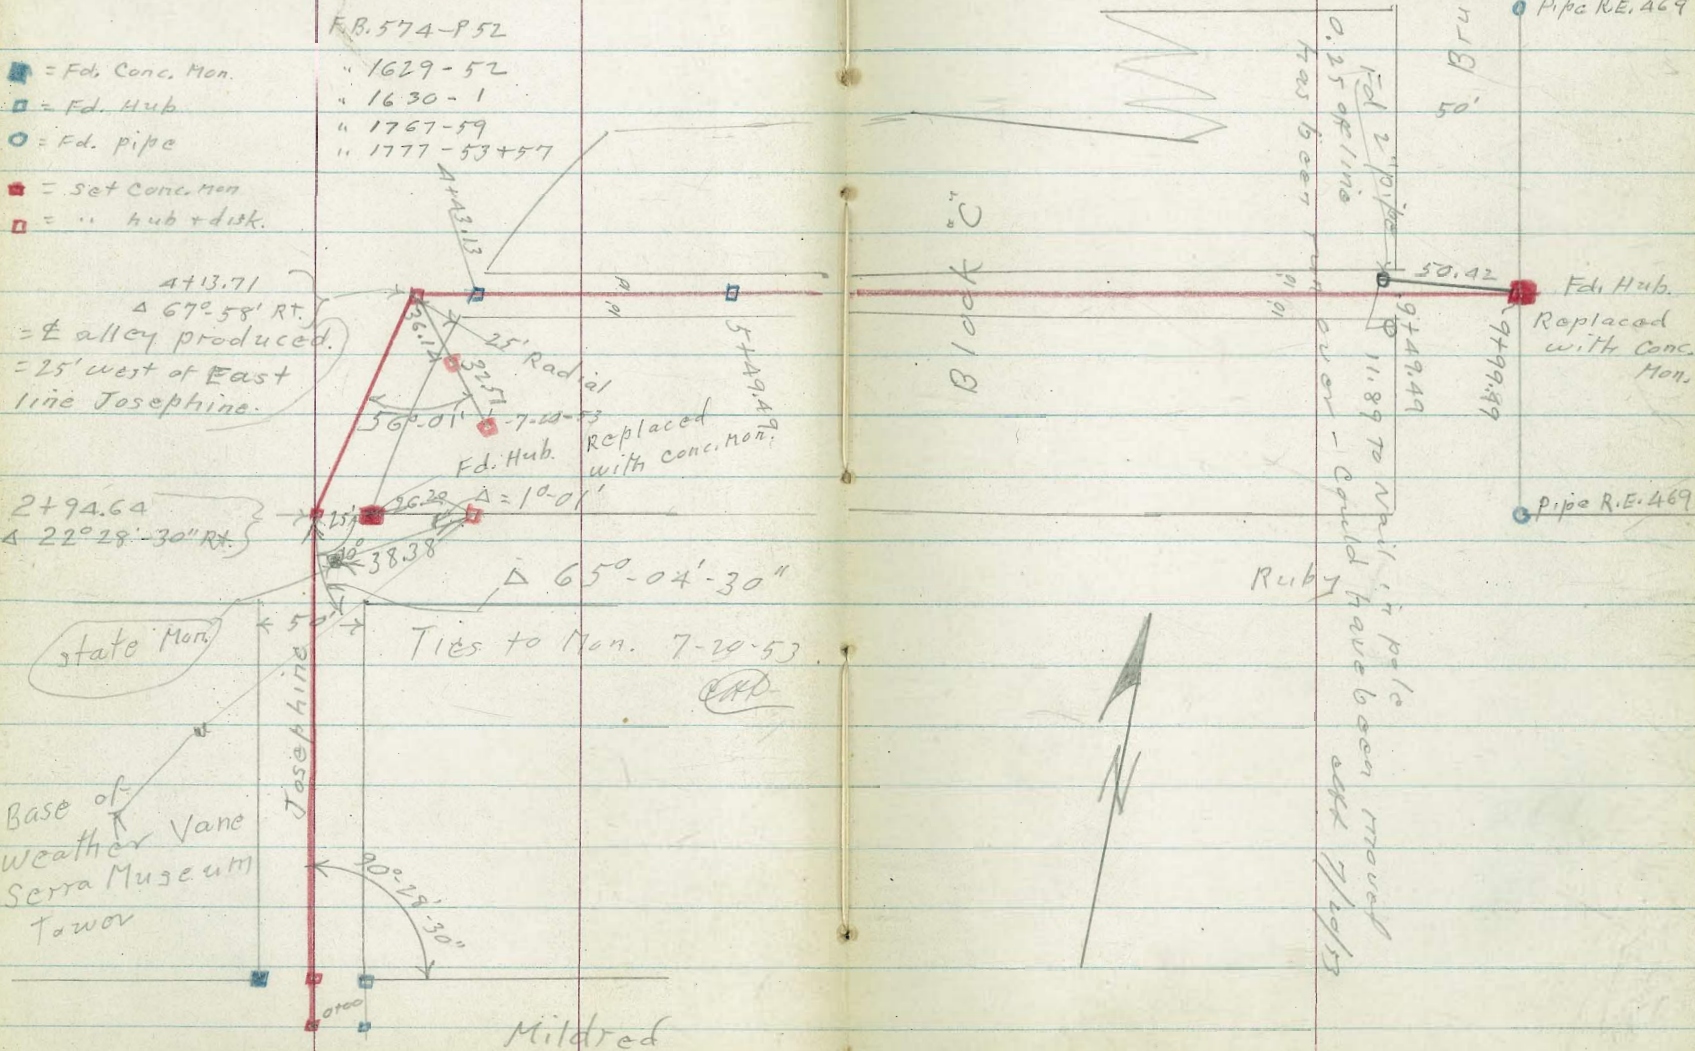 F.B. 574-P 52
" 1629-52
" 1630-1
" 1767-59
" 1777-53+57
= Fd. Conc. Mon.
= Fd. Hub
= Fd. pipe
= set Conc. Mon
= " hub + disk.
4+13.71
Δ 67°-58' Rt.
= ℄ alley produced.
= 25' west of East
line Josephine.
4+43.13
36.12
25' Radial
32.51
56°-01'
7-20-53
5+49.49
Fd. Hub. Replaced
with conc. Mon.
2+94.64
Δ 22°28'-30" Rt.
25'
26.20
Δ = 1°-01'
38.38
Δ 65°-04'-30"
State Mon.
50'
Ties to Mon. 7-20-53
Josephine
Base of
Weather Vane
Serra Museum
Tower
90°-28'-30"
0+00
Mildred
Block "C"
Fd 2" pipe
0.25 off line
has been run over - Could have been moved
7/20/53
11.89 To Nail in pole
9+49.49
50.42
9+99.89
50'
Pipe R.E. 469
Fd. Hub.
Replaced
with Conc.
Mon.
Pipe R.E. 469
Ruby
N